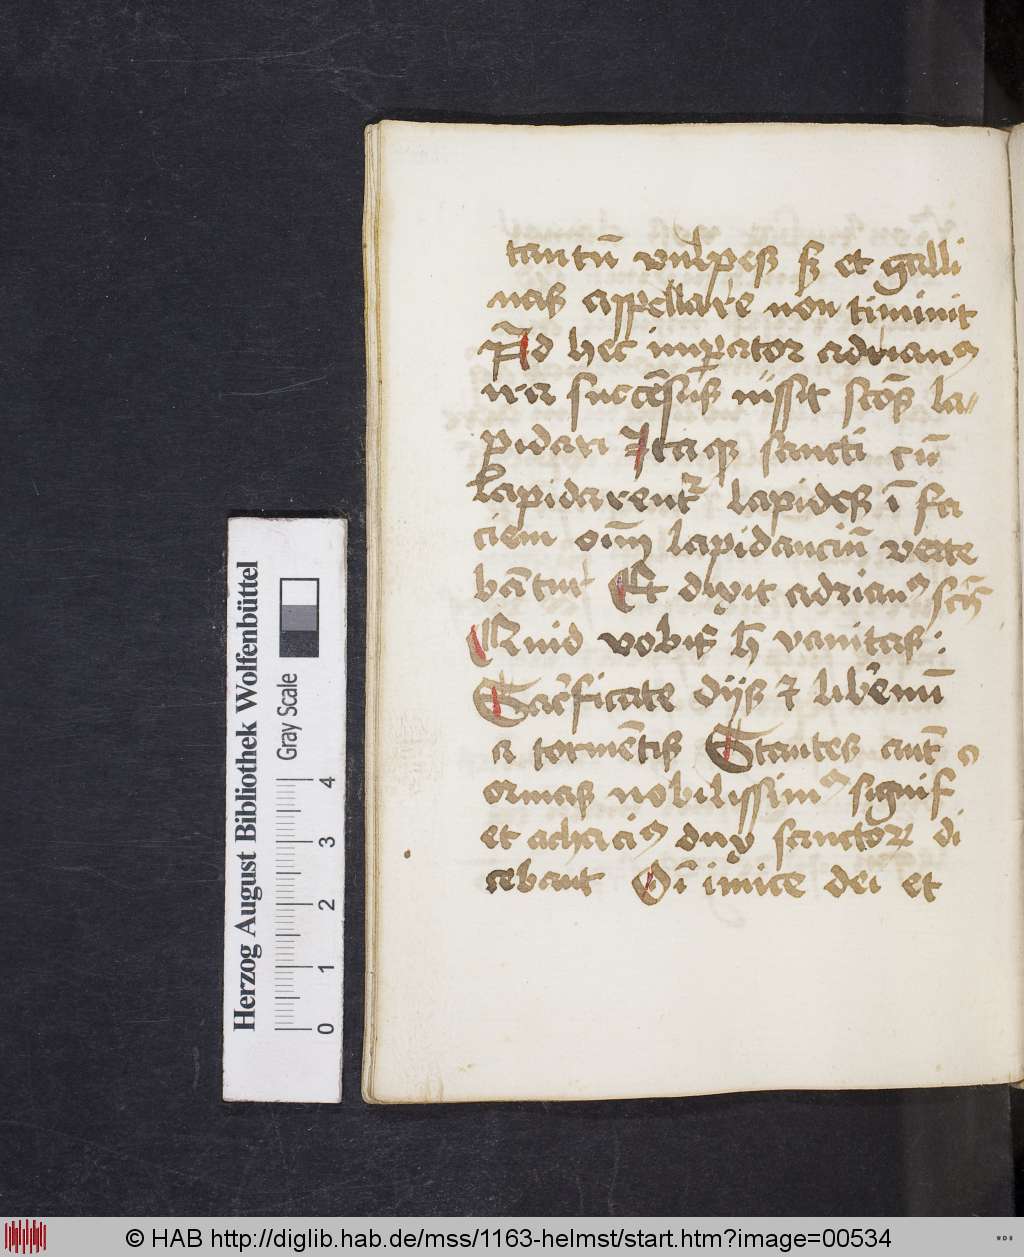 tantū vulpes sȝ et galli
nas appellare non timuit
Ad hec imꝑator adrianꝰ
ira succēsus iussit scōs la⸗
pidari Itaqꝫ sancti cū
lapidarentʳ lapides ī fa
ciem oīm lapidanciū verte
bantur Et dixit adrianꝰ
Quid vobis h̄ vanitas :
Sacʳficate diis ⁊ libemū
a tormētis Stantes aut̄
ormas nobilissimꝰ
et achaciꝰ dux sanctorꝝ di
cebant O īimice dei et
Herzog August Bibliothek Wolfenbüttel
Gray Scale
0 1 2 3 4
© HAB http://diglib.hab.de/mss/1163-helmst/start.htm?image=00534